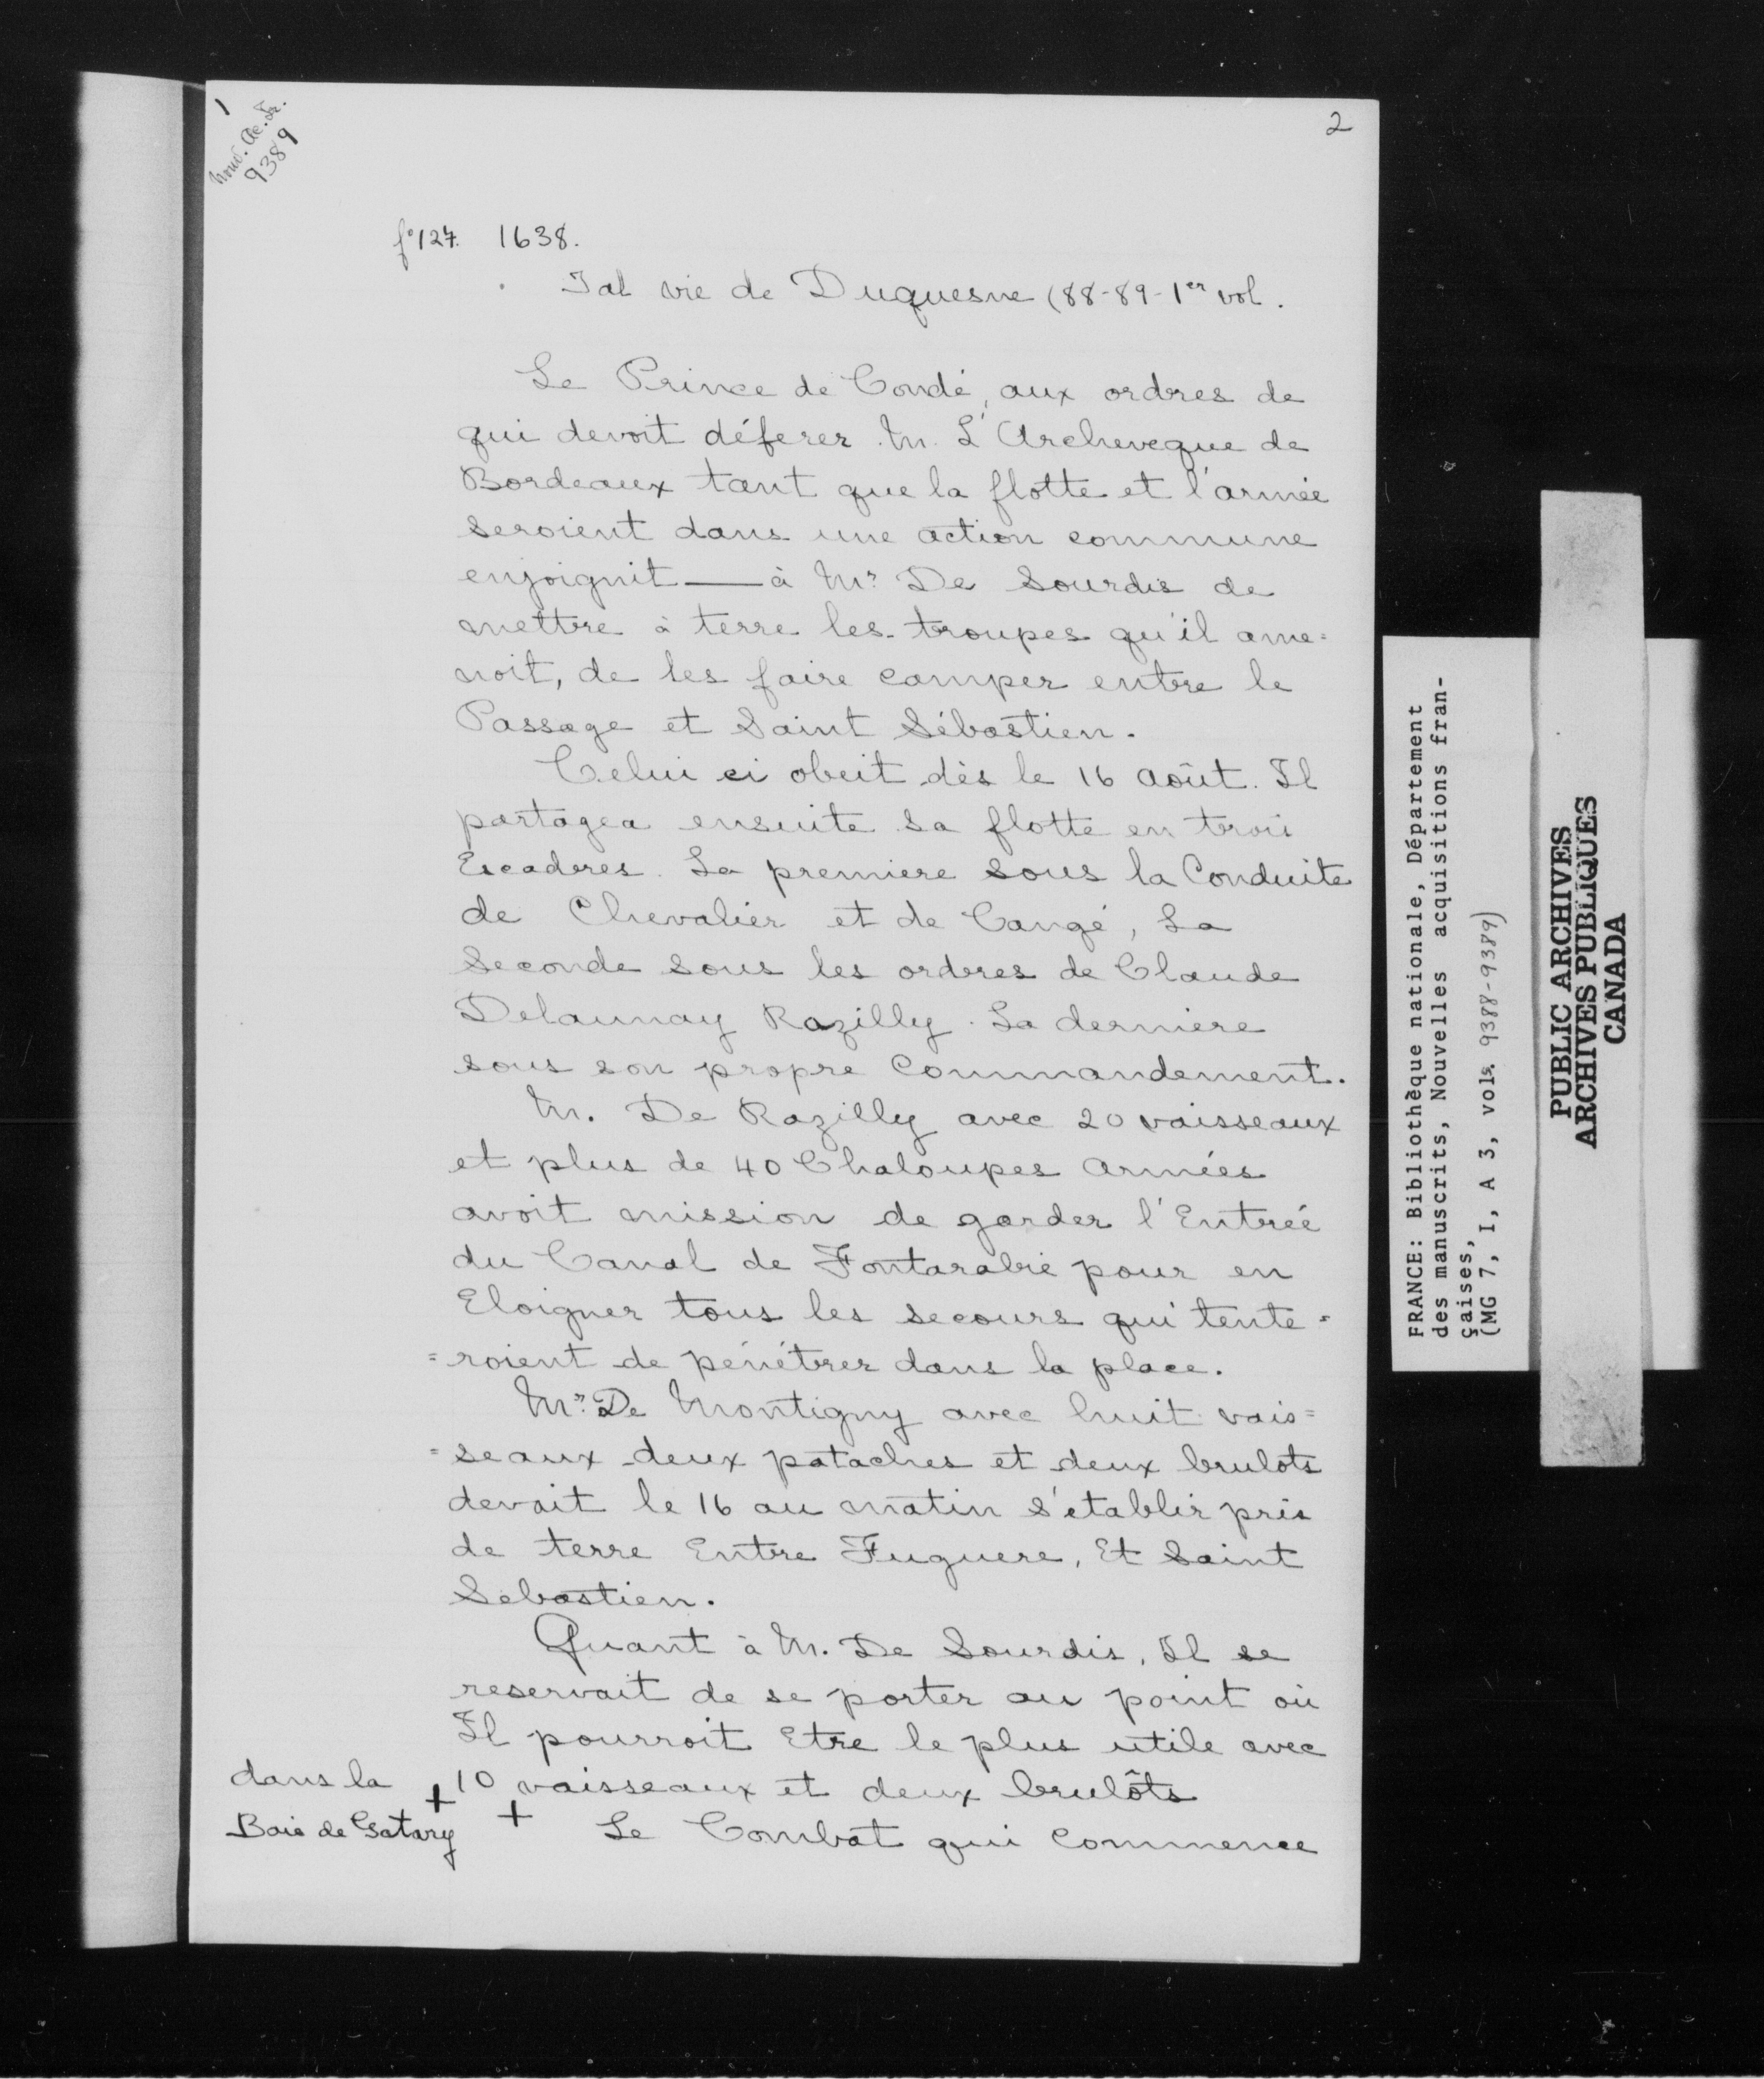 1
Nouv. Ac. Fr.
9389
2
fº 127. 1638.
Jal vie de Duquesne (88-89-1er vol.
Le Prince de Condé, aux ordres de
qui devoit déferer M. L'Archeveque de
Bordeaux tant que la flotte et l'armée
seroient dans une action commune
enjoignit — à Mr De Sourdis de
mettre à terre les troupes qu'il ame=
noit, de les faire camper entre le
Passage et Saint Sébastien.
Celui ci obeit dès le 16 Août. Il
partagea ensuite sa flotte en trois
Escadres. La premiere sous la Conduite
de Chevalier et de Cangé, La
Seconde sous les ordres de Claude
Delaunay Razilly. La derniere
sous son propre Commandement.
M. De Razilly avec 20 vaisseaux
et plus de 40 Chaloupes armées
avoit mission de garder l'Entrée
du Canal de Fontarabie pour en
Eloigner tous les secours qui tente=
=roient de pénétrer dans la place.
Mr De Montigny avec huit vais=
=seaux deux pataches et deux brulots
devait le 16 au matin s'etablir près
de terre Entre Fuguere, Et Saint
Sebastien.
Quant à M. De Sourdis, Il se
reservait de se porter au point où
Il pourroit Etre le plus utile avec
10 vaisseaux et deux brulôts
dans la +
Baie de Gatary
+ Le Combat qui Commence
FRANCE: Bibliothèque nationale, Département
des manuscrits, Nouvelles acquisitions fran-
çaises,
(MG 7, I, A 3, vols. 9388-9389)
PUBLIC ARCHIVES
ARCHIVES PUBLIQUES
CANADA